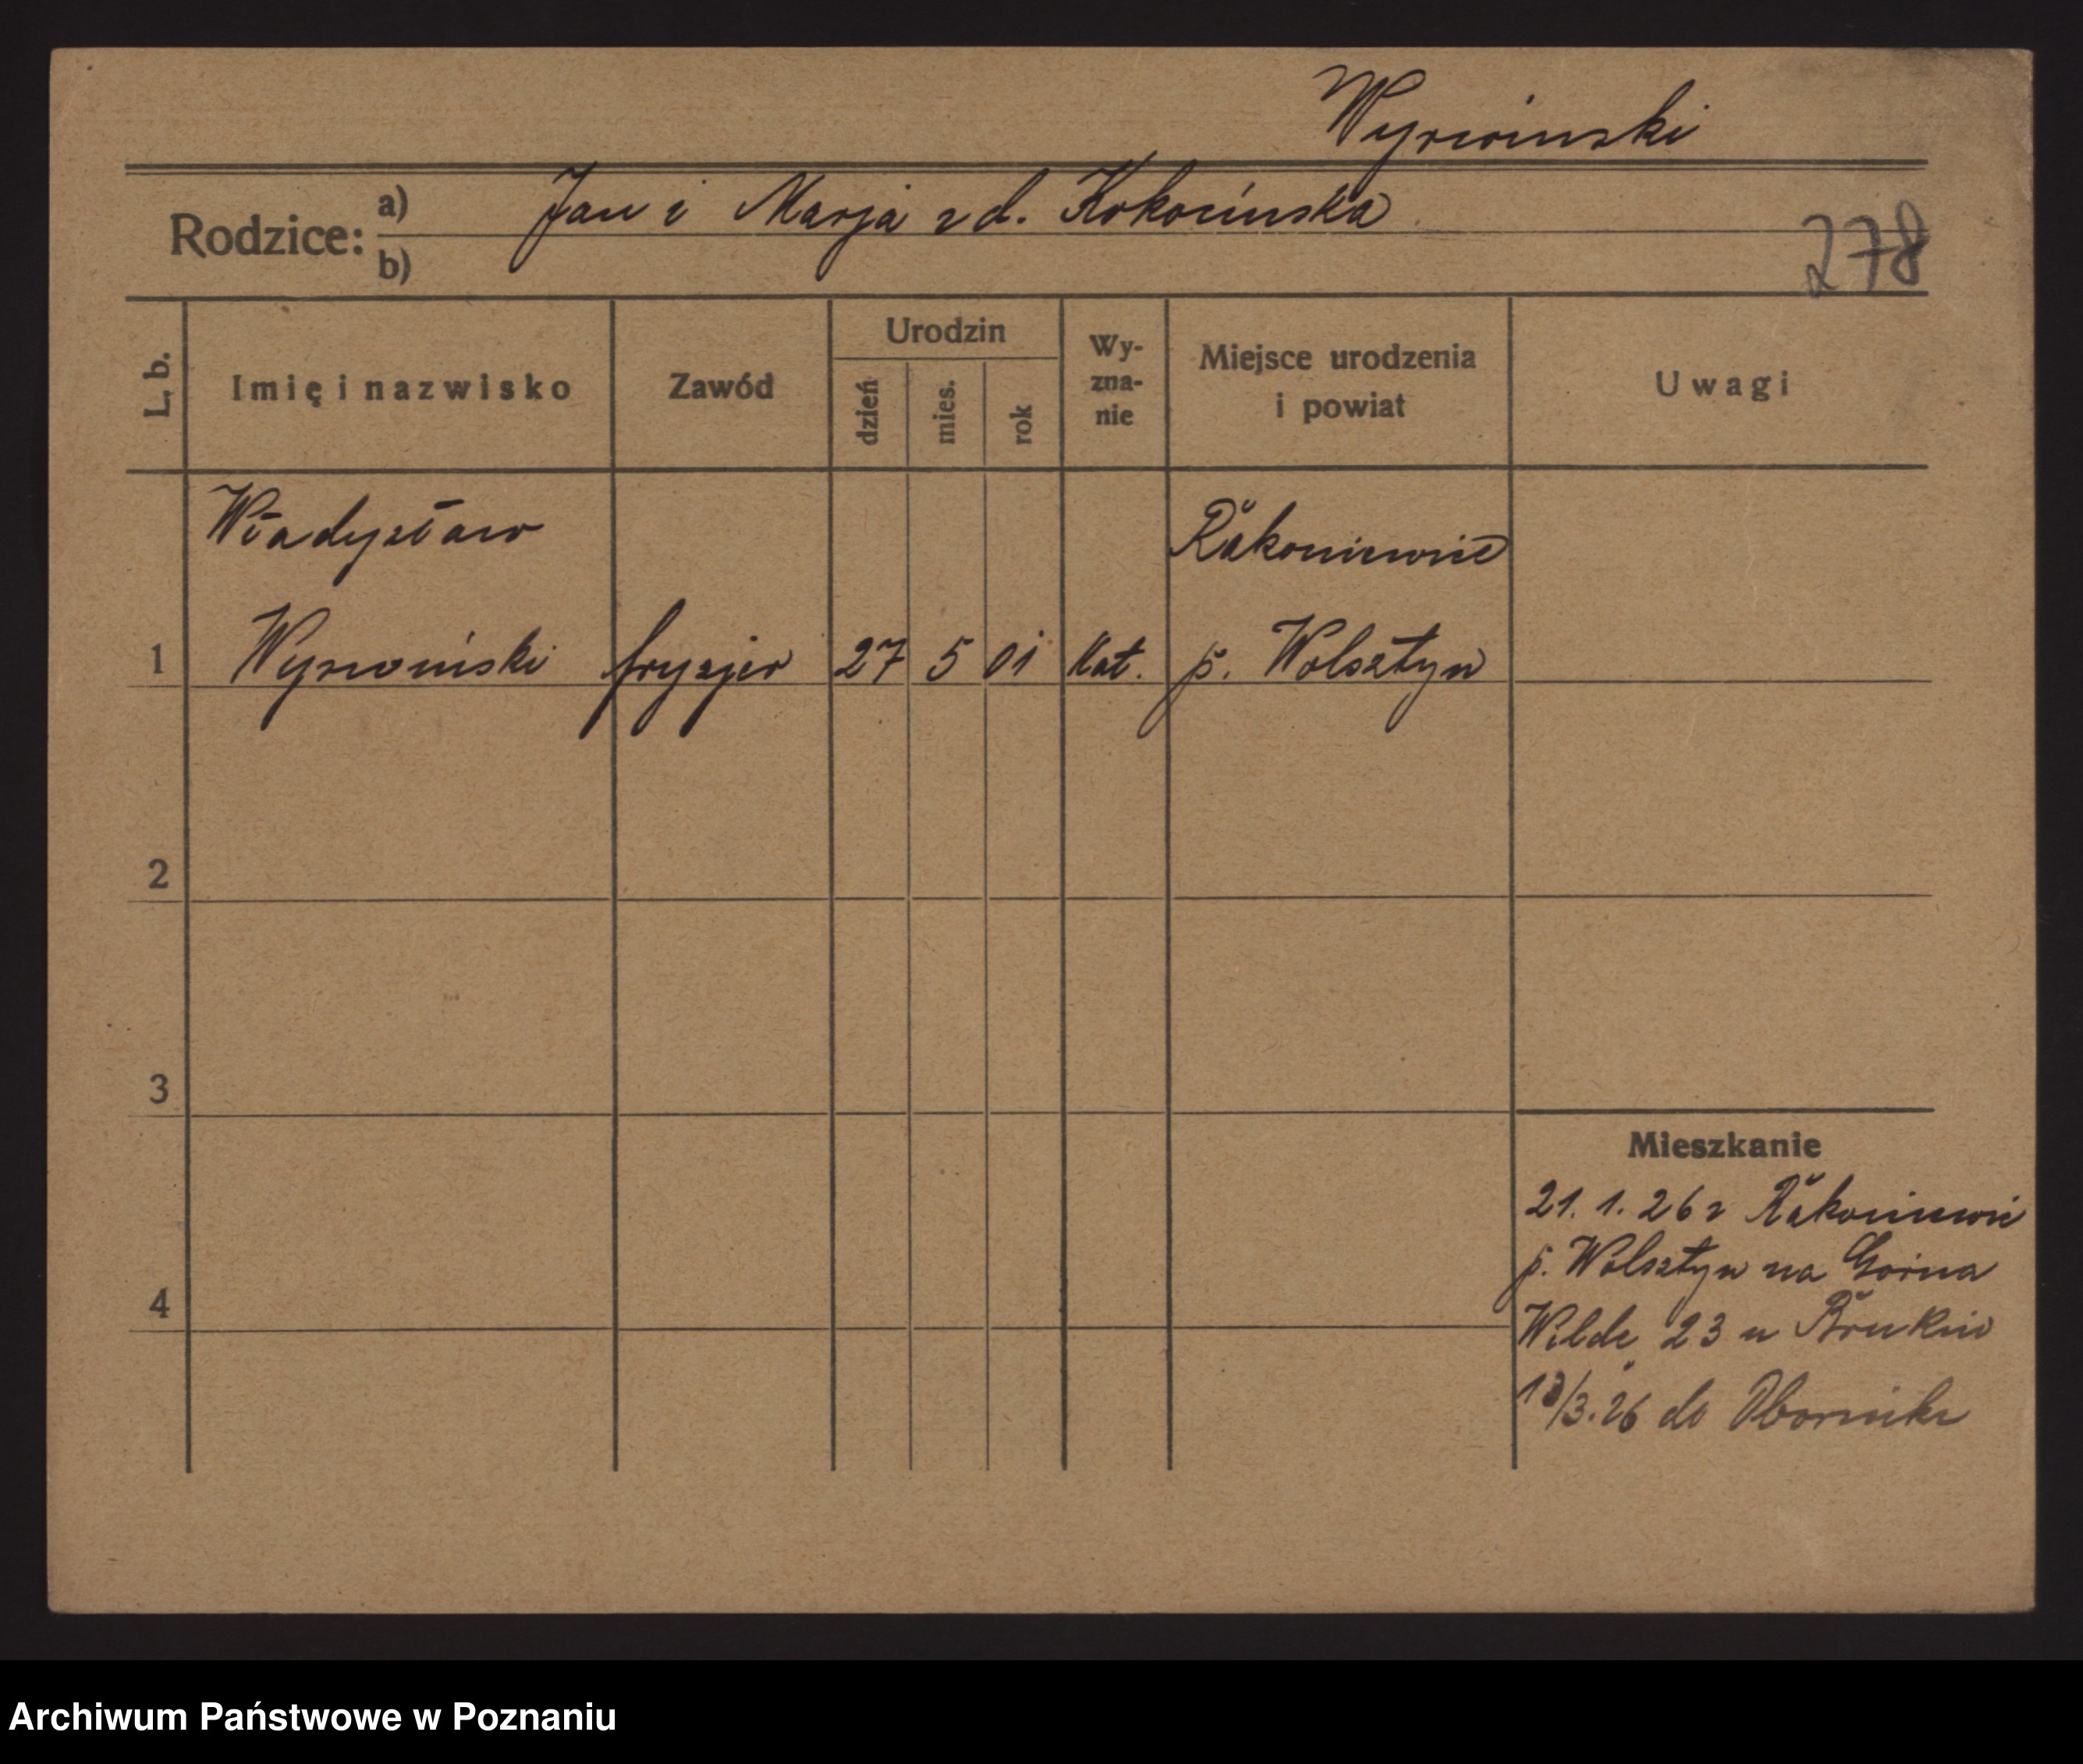 Wyrwinski
Rodzice: a) Jan i Marja z d. Kokocińska
b)
278
L. b.
Imię i nazwisko
Zawód
Urodzin
dzień
mies.
rok
Wy-
zna-
nie
Miejsce urodzenia
i powiat
Uwagi
Władysław
Rakoniewic
1 Wyrwiński fryzjer 27 5 01 Kat. p. Wolsztyn
2
3
4
Mieszkanie
21. 1. 26 z Rakoniewic
p. Wolsztyn na Górna
Wilde 23 u
/3.26 do Obornik
Archiwum Państwowe w Poznaniu